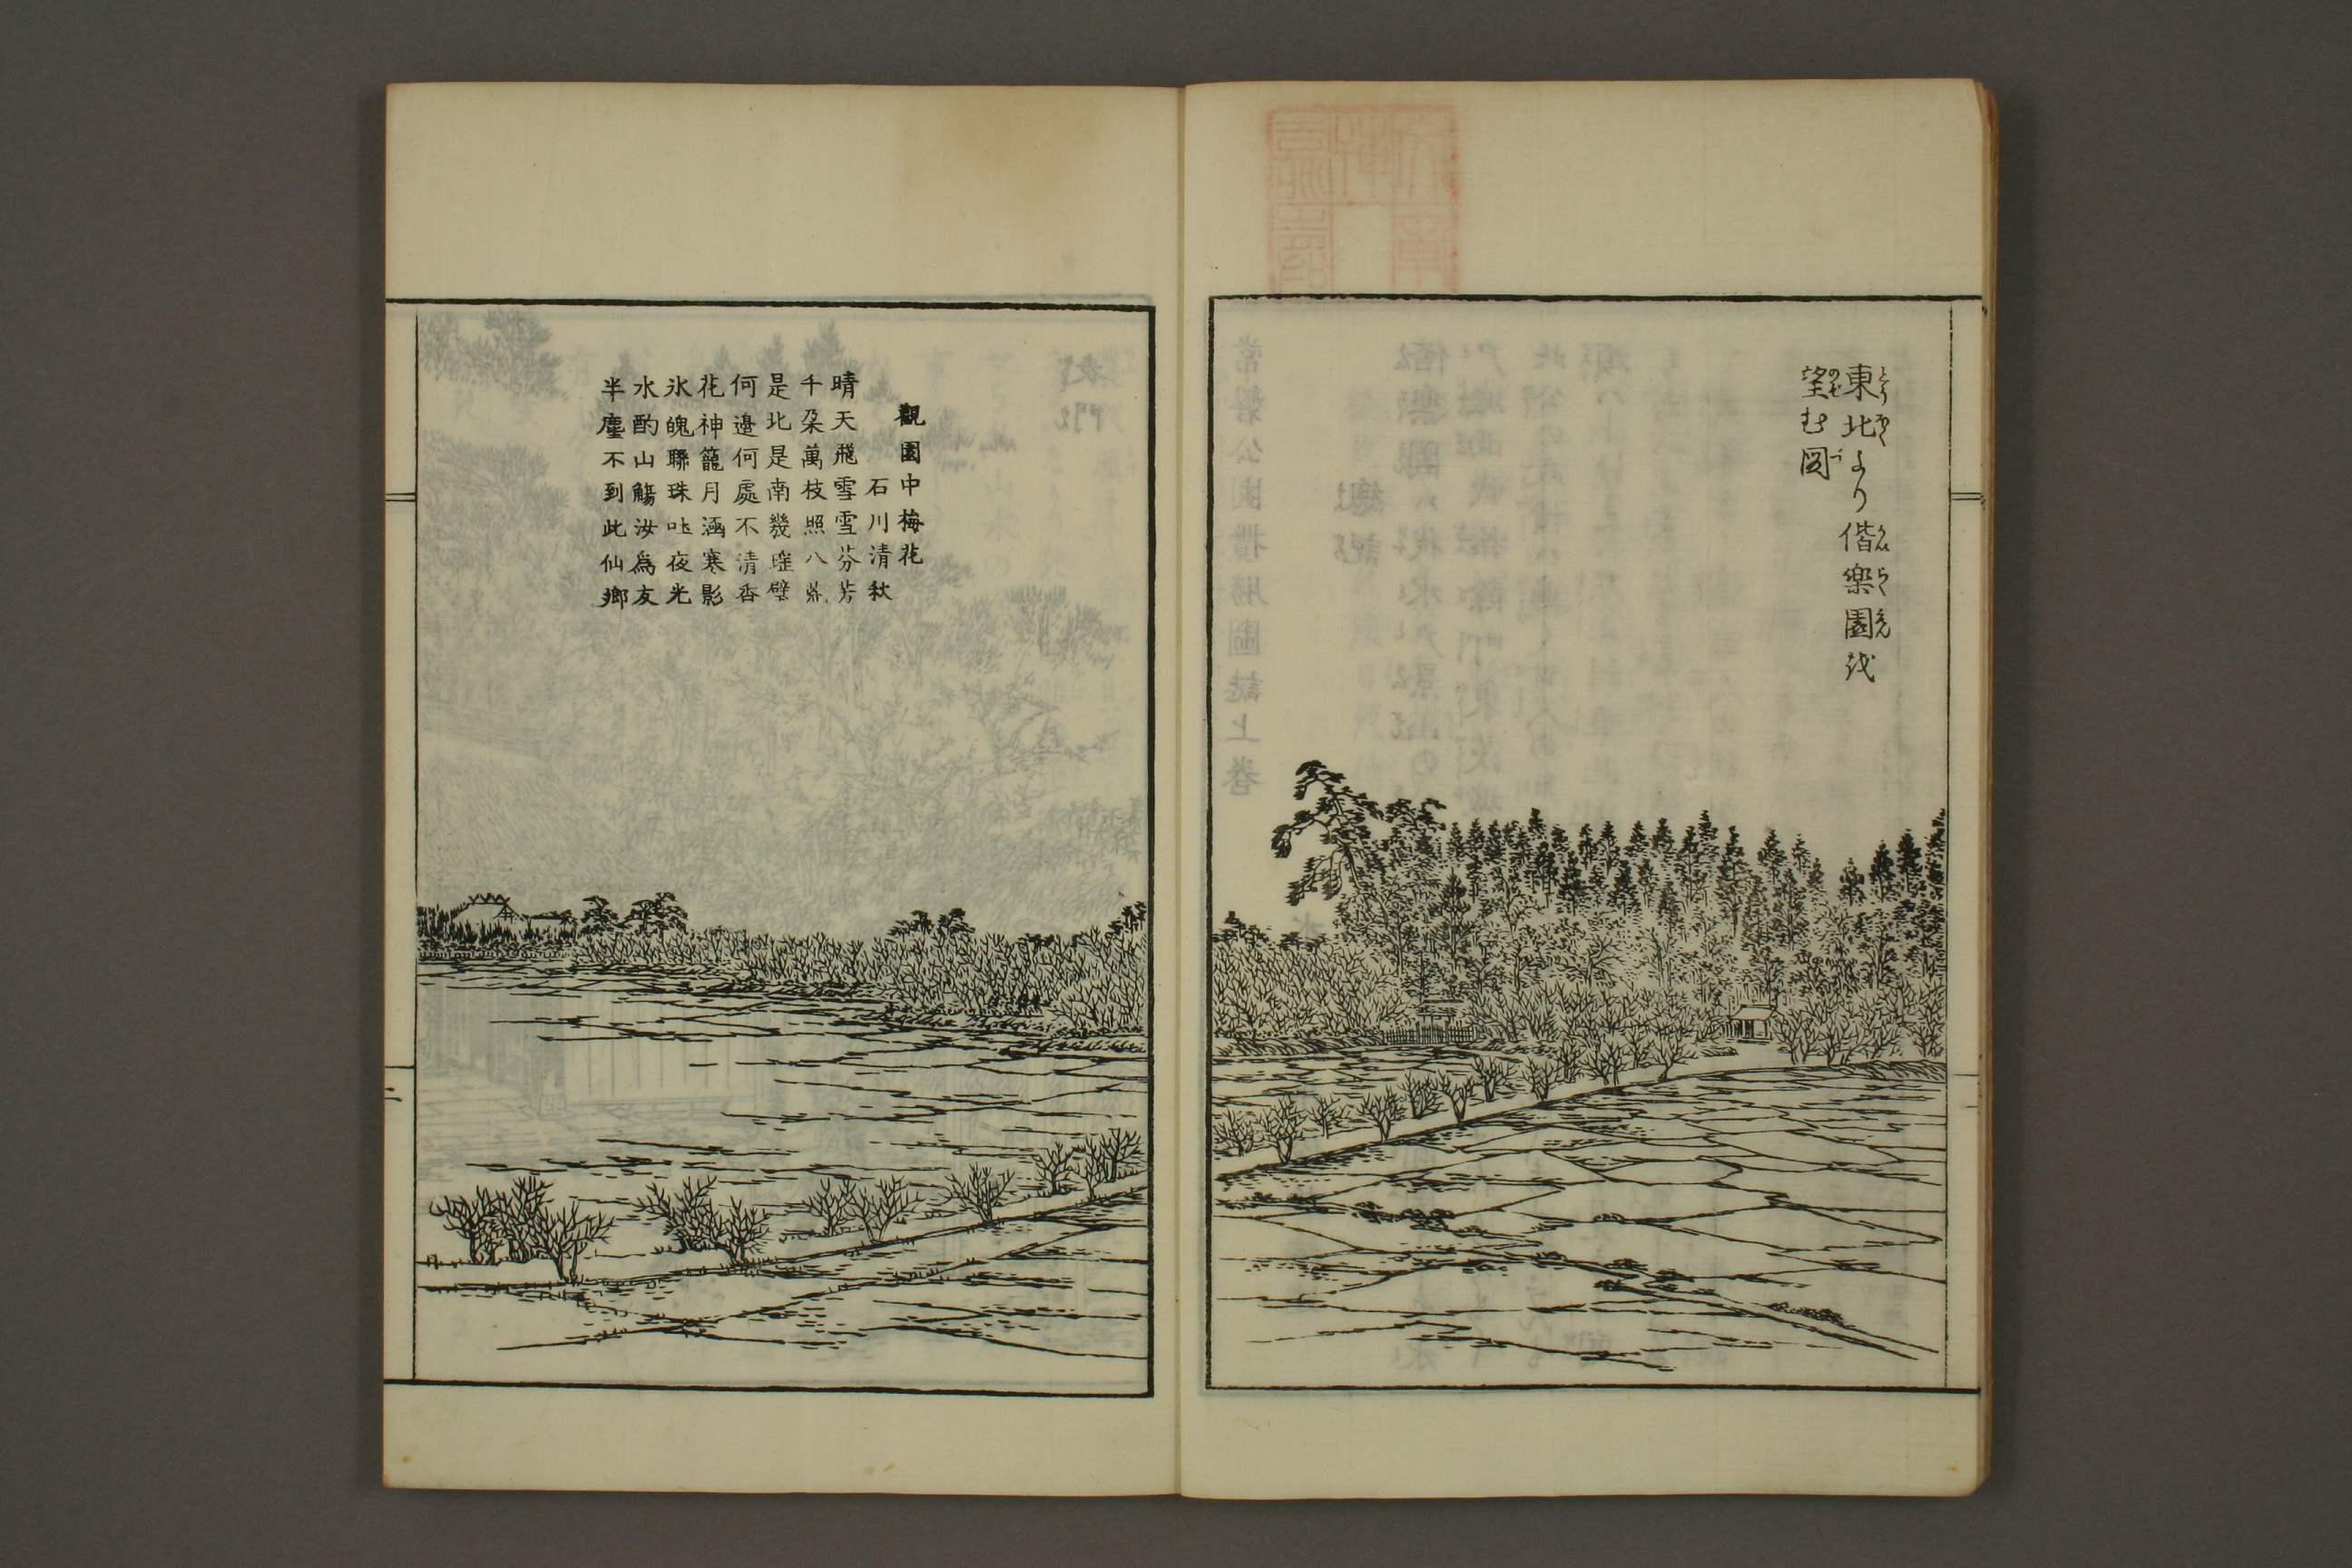 東北より偕樂園を
望む図
觀園中梅花
石川清秋
晴天飛雪雪芬芳
千朶萬枝照八荒
是北是南幾璧
何邉何處不清香
花神籠月涵寒影
氷魄聯珠吐夜光
水酌山觴汝爲友
半塵不到此仙鄉